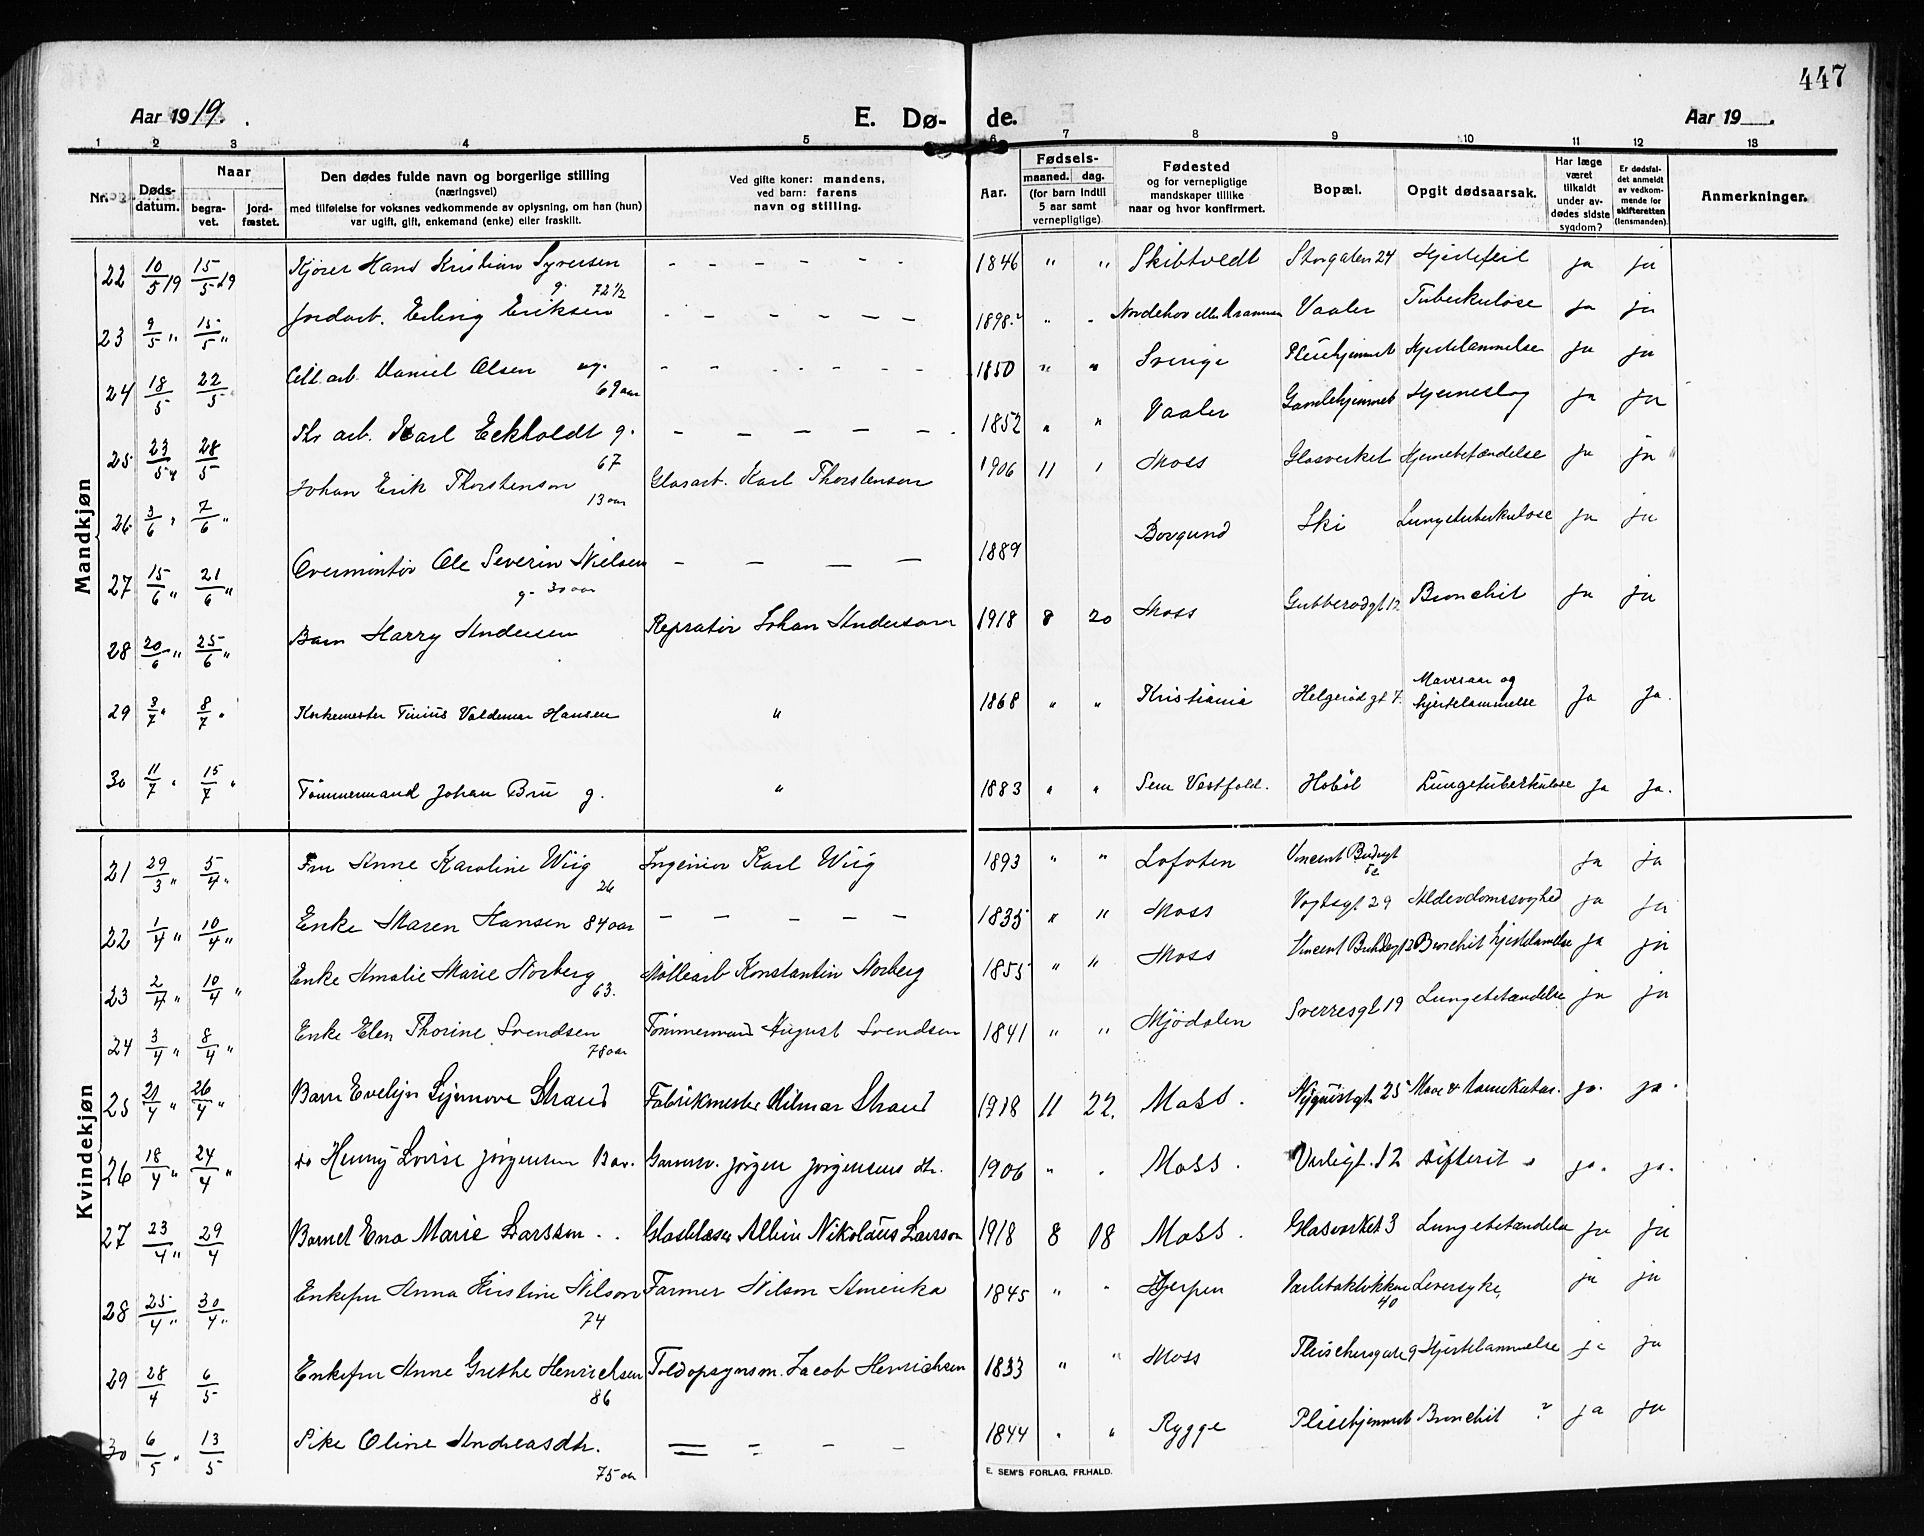 447
Aar 1919.
E. Dø- de.
Aar 19
1 2 3 4 5 6 7 8 9 10 11 12 13
Nr.
Døds-datum.
Naar
begra-vet.
jord-fæstet.
Den dødes fulde navn og borgerlige stilling
(næringsvei)
med tilføielse for voksnes vedkommende av oplysning, om han (hun)
var ugift, gift, enkemand (enke) eller fraskilt.
Ved gifte koner: mandens,
ved barn: farens
navn og stilling.
Aar.
Fødsels-
maaned. dag.
(for barn indtil
5 aar samt
vernepligtige)
Fødested
og for vernepligtige
mandskaper tillike
naar og hvor konfirmert.
Bopæl.
Opgit dødsaarsak.
Har læge
været
tilkaldt
under av-
dødes sidste
sygdom?
Er dødsfal-
det anmeldt
av vedkom-
mende for
skifteretten
(lensmanden).
Anmerkninger.
Mandkjøn
22 10/5 19 15/5 19 Kjører Hans Kristian Syversen g. 72 1/2 - - - - - - 1846 " " Skibtvedt Storgaten 24 Hjertefeil ja ja
23 9/5 " 15/5 " Jordarb. Erling Eriksen - - - - - - 1898 Vaaler Tuberkulose ja ja
24 18/5 22/5 Daniel Olsen ug. 69 aar - - - - - - 1850 " " Sverige Pleiehjemmet Hjertelammelse ja ja
25 23/5 " 28/5 arb. Karl Eckholdt g. 67 - - - - - 1852 " " Vaaler Gamlehjemmet Hjerneslag ja ja
26 3/6 " 7/6 " Johan Erik Thorstenson 13 aar Glasarb. Karl Thorstenson 1906 11 1 Moss Glasverket Hjernebetændelse ja ja
27 15/6 " 21/6 " Overmontør Ole Severin Nielsen g. 30 aar - - - - 1889 Borgund Ski Lungetuberkulose ja ja
28 20/6 " 25/6 " Barn Harry Andersen Repratør Johan Anderson 1918 8 20 Moss Gubberødgt 12 Bronchit ja ja
29 3/7 " 8/7 " Korkemester Tinius Valdemar Hansen " 1868 " " Kristiania Helgerødgt 7. Mavesaar og hjertelammelse Ja Ja.
30 11/7 " 15/7 " Tømmermand Johan Bru g. " 1883 " " Sem Vestfold. Hobøl Lungetuberkulose Ja Ja.
Kvindekjøn
21 29/3 " 5/4 " Fru Anne Karoline Wiig 26 Ingeniør Karl Wiig 1893 " " Lofoten Vincent Budsgt ja ja
22 1/4 " 10/4 " Enke Maren Hansen 84 aar - - - - 1835 " " Moss Vogtsgt 29 Alderdomssvaghed ja ja
23 2/4 " 10/4 " Enke Amalie Marie Norberg 63. Møllearb Konstantin Norberg 1855 " " Moss Vincent Budsgt 12 Bronchit hjertelamelse ja ja
24 3/4 " 8/4 " Enke Elen Thorine Svendsen 78 aar Tømmermand August Svendsen 1841 " " Mjødalen Sverresgt 19 Lungebetændelse ja ja
25 21/4 " 26/4 " Barn Evelyn Synnøve Strand Fabrikmester Hilmar Strand 1918 11 22. Moss. Nyquistgt 25 Mave & tarmkatar. ja. ja.
26 18/4 " 24/4 " do Henny Lovise Jørgensen Bar. Jørgen Jørgensens dtr. 1906 " . Moss. Varligt. 12 Difterit ja. ja.
27 23/4 " 29/4 Barnet Ena Marie Larssen . . Glasblæser Albin Nikolaus Larsson 1918 8 18 Moss. Glasverket 3 Lungebetændelse ja ja
28 25/4 " 30/4 " Enkefru Anna Kirstine Nilson 74 Farmer Nilson Amerika 1845 " " Gjerpen Varlebakløkken 40 Leversyke, ja ja
29 28/4 6/5 Enkefru Anne Grethe Henrichsen 86 Toldopsynsm. Jacob Henrichsen 1833 " " Moss Fleischersgate 9 Hjertelammelse ja ja
30 6/5 " 13/5 Pike Oline Andreasdtr. 75 aar = - - - 1844 " " Rygge Pleiehjemmet Bronchit ? ja ja
E. SEM'S FORLAG, FR.HALD.